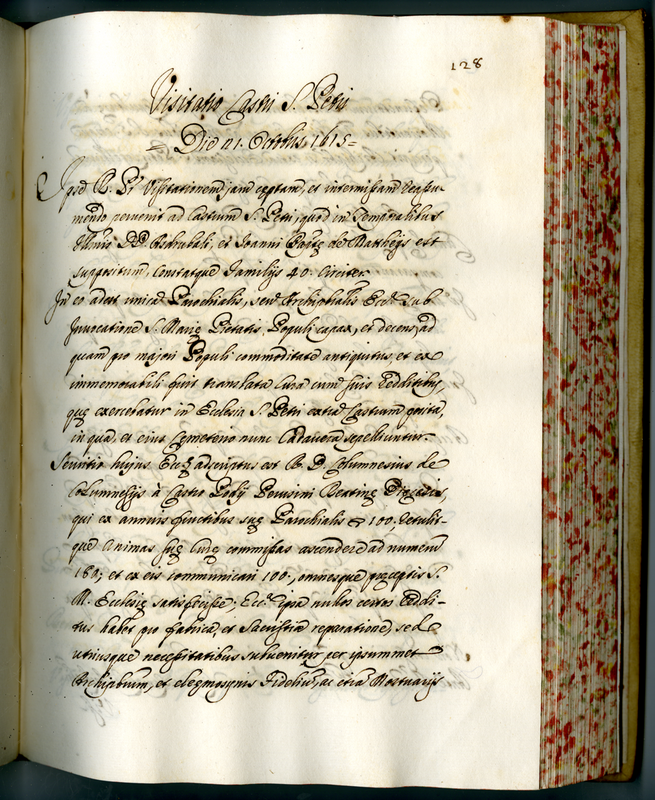 128
Visitatio Castri S. Petri
Die 21. Octobris 1615
Ipse R. P. Visitationem jam ceptam, et intermissam reassu-
mendo pervenit ad Castrum S. Petri, quod in temporalibus
Illmis DD. Asdrubali, et Joanni de Mattheijs est
suppositum, contatque Familijs 40. circiter
In eo adest unica Parochialis, seu Archipbalis Eccla sub
Invocatione S. Marię Pietatis, Populi capax, et decens, ad
quam pro majori Populi commoditate antiquitus, et ex
immemorabili fuit translata Cura cum suis redditibus
quę exercebatur in Ecclesia S. Petri extra Castrum posita,
in qua, et eius Cęmeterio nunc Cadavera sepelliuntur.
Servitio hujus Eccę adscriptus est R. D. Columnesius de
Columnesijs à Castro Podij Perusinę Dięcesis,
qui ex annuis fructibus suę Parochialis 100, retulit-
que Animas suę Curę commissas ascendere ad numerum
180; et ex eis communicari 100., omnesque pręceptis S.
M. Ecclesię satisfecisse; Eccla ipsa nullos certos reddi-
tus habet pro fabrica, et Sacristia reparatione, sed
utriusque necessitatibus subvenitur per ipsummet
Archipbrum, et elęmosynis Fidelium, ac etiam Mortuarijs